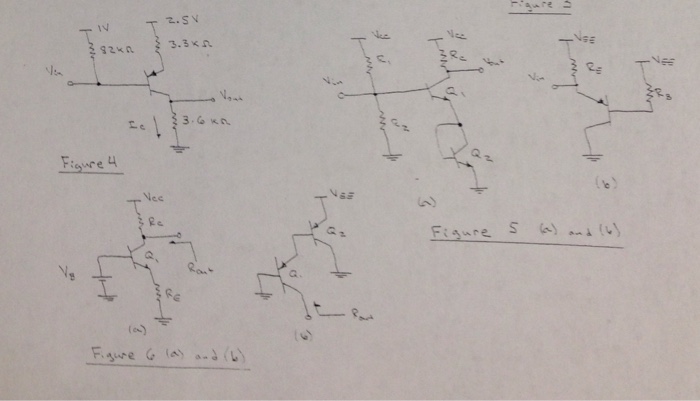 Figure 3
1V
82KΩ
2.5V
3.3KΩ
Vin
Vout
Ic
3.6KΩ
Figure 4
Vcc
R1
Vcc
Rc
Vout
Vin
Q1
R2
Q2
(a)
VEE
RE
Vin
VEE
RB
(b)
Figure 5 (a) and (b)
Vcc
Rc
Q1
VB
Rout
RE
(a)
VEE
Q2
Q1
Rout
(b)
Figure 6 (a) and (b)